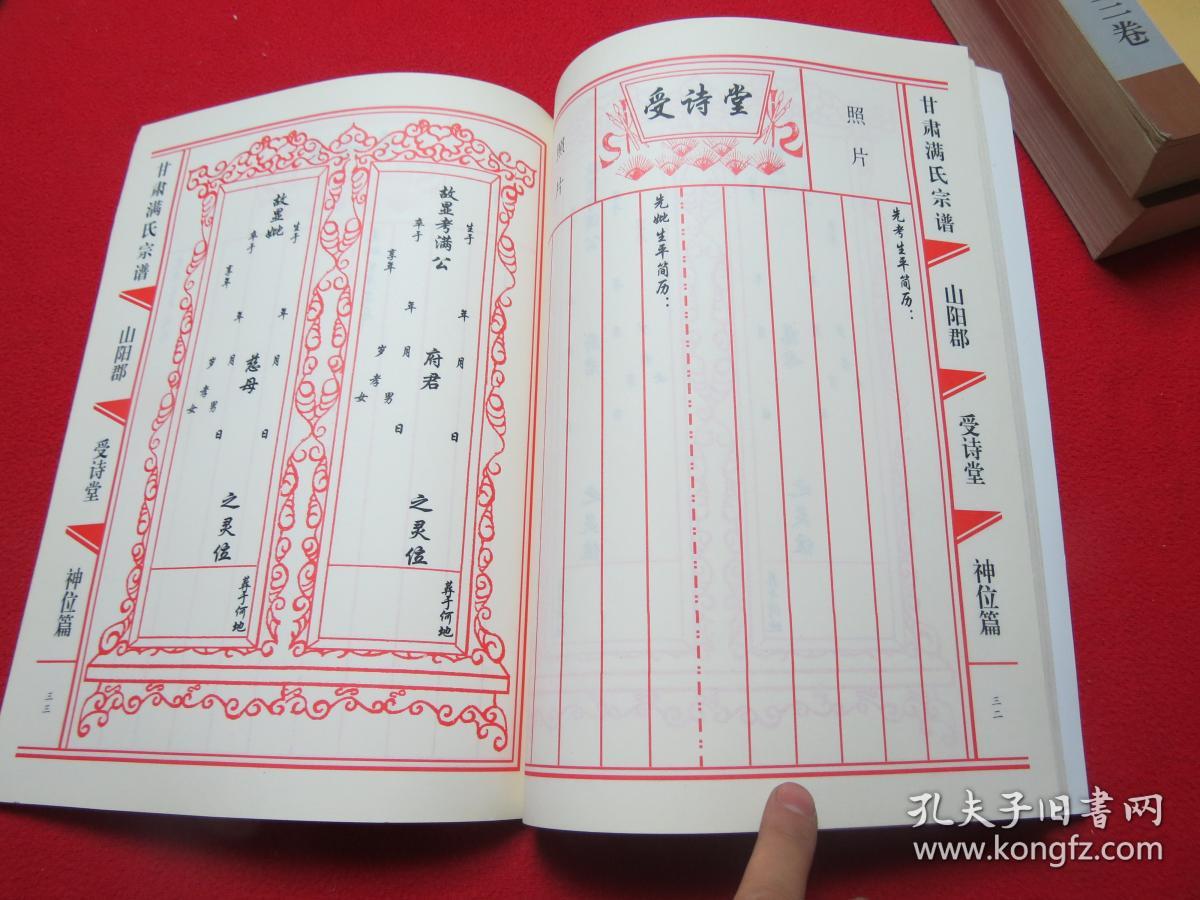 三卷
甘肃满氏宗谱
山阳郡
受诗堂
神位篇
三二
受诗堂
照片
先考生平简历：
先妣生平简历：
照片
故显考满公 府君 之灵位
生于 年 月 日
卒于 年 月 日
享年 岁 孝男
女
葬于何地
故显妣 慈母 之灵位
生于 年 月 日
卒于 年 月 日
享年 岁 孝男
女
葬于何地
甘肃满氏宗谱
山阳郡
受诗堂
神位篇
三三
孔夫子旧书网
www.kongfz.com